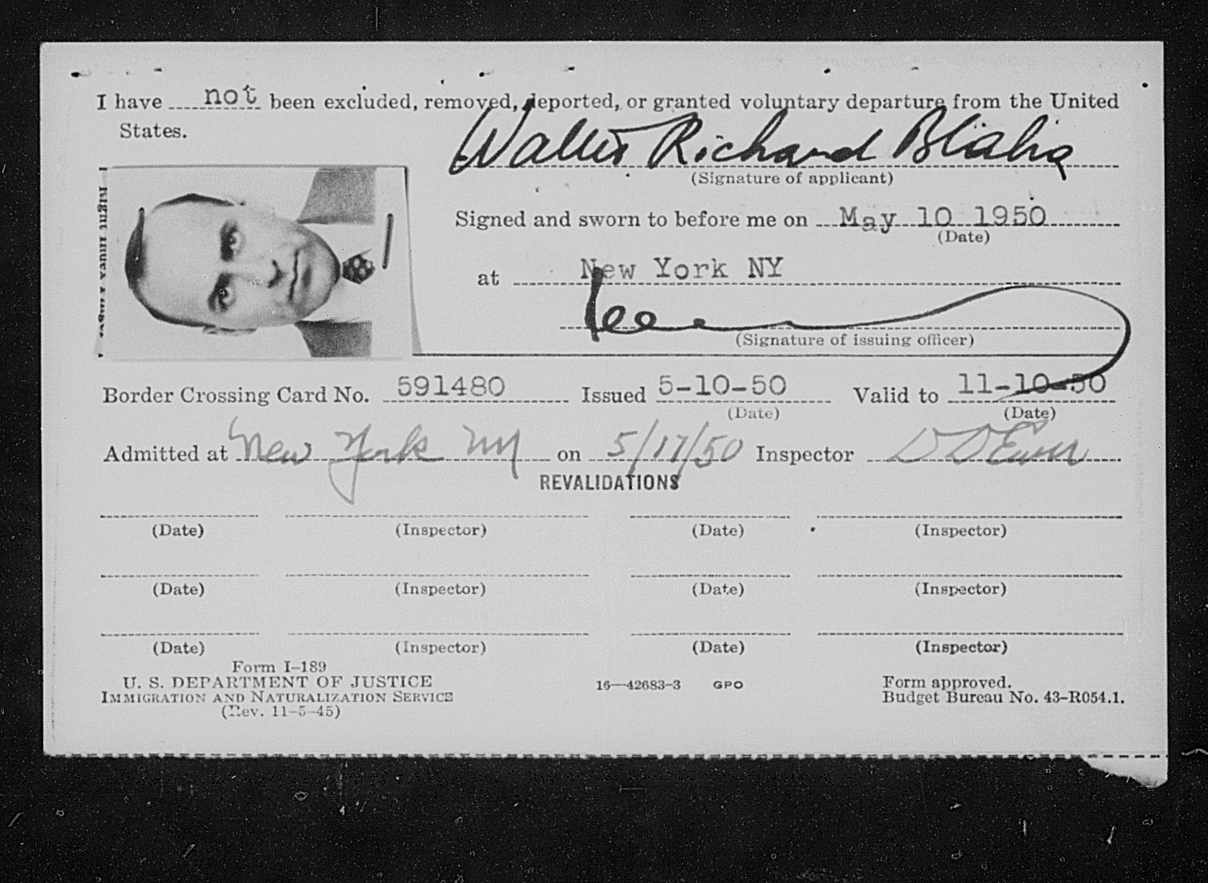 I have not been excluded, removed, deported, or granted voluntary departure from the United
States.
Walter Richard Blaha
(Signature of applicant)
Signed and sworn to before me on May 10 1950
(Date)
at New York NY
(Signature of issuing officer)
Border Crossing Card No. 591480 Issued 5-10-50 Valid to 11-10-50
(Date) (Date)
Admitted at New York NY on 5/17/50 Inspector
REVALIDATIONS
(Date) (Inspector) (Date) (Inspector)
(Date) (Inspector) (Date) (Inspector)
(Date) (Inspector) (Date) (Inspector)
Form I-189
U. S. DEPARTMENT OF JUSTICE
IMMIGRATION AND NATURALIZATION SERVICE
(Rev. 11-5-45)
16—42683-3 GPO
Form approved.
Budget Bureau No. 43-R054.1.